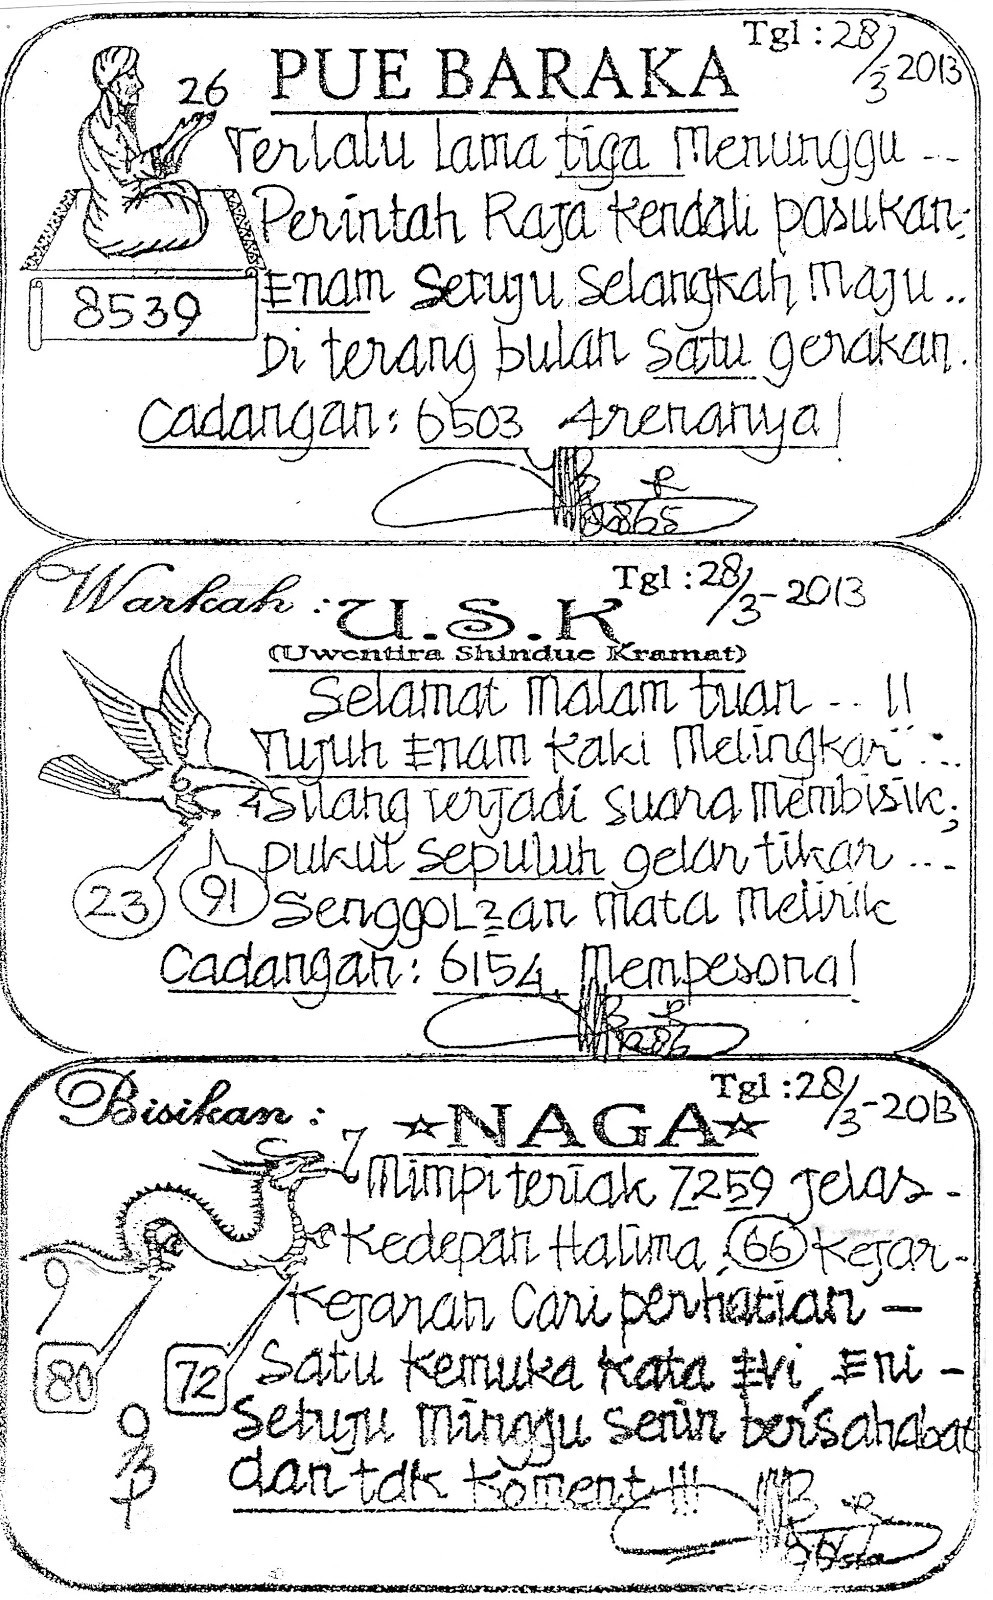 Tgl : 28/3-2013
PUE BARAKA
26
Terlalu lama tiga Menunggu ---
Perintah Raja Kendali pasukan;
Enam Setuju Selangkah Maju ..
8539
Di terang bulan Satu gerakan.
Cadangan : 6503 Arenanya!
Tgl : 28/3-2013
Warkah : U.S.K
(Uwentira Shindue Kramat)
Selamat Malam tuan - - !!
Tujuh Enam Kaki Melingkar ...
4 Silang terjadi suara Membisik;
pukul sepuluh gelar tikar ...
23 91
Senggol2an Mata Melirik
Cadangan : 6154 Mempesona!
Tgl : 28/3-2013
Bisikan : ☆NAGA☆
7
Mimpi teriak 7259 jelas -
Kedepan Halima, 66 Kejar-
9
Kejaran Cari perhatian -
80 72
Satu Kemuka Kata Evi, Eni -
Setuju Minggu Senin bersahabat
dan tdk Koment !!!